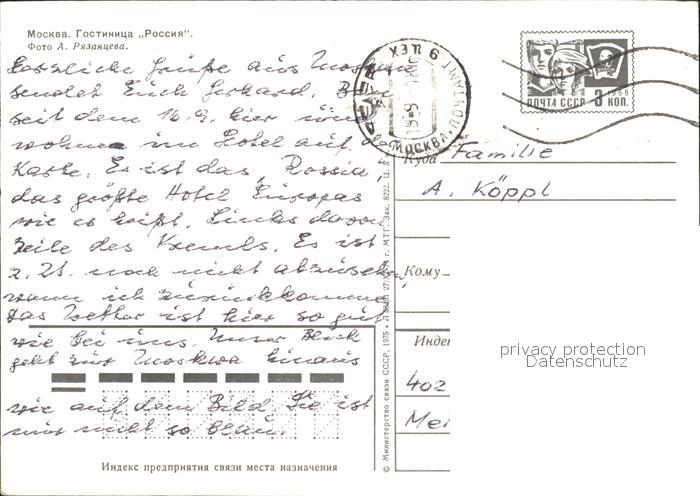 Москва. Гостиница „Россия".
Фото А. Рязанцева.
Herzliche Grüße aus Moskau
sendet Euch Gerhard. Bin
seit dem 16.9. hier und
wohne im Hotel auf der
Karte. Es ist das „Rossia",
das größte Hotel Europas
wie es heißt. Links davon
Teile des Kremls. Es ist
z. Zt. noch nicht abzusehen,
wann ich zurückkomme.
Das Wetter ist hier so gut
wie bei uns. Unser Blick
geht zur Moskwa hinaus
wie auf dem Bild. Sie ist
nur nicht so blau.
Индекс предприятия связи места назначения
© Министерство связи СССР, 1975
МОСКВА
ПОЧТА СССР 3 КОП.
1966
Куда Familie
A. Köppl
Кому
Индекс
402
Mer
privacy protection
Datenschutz